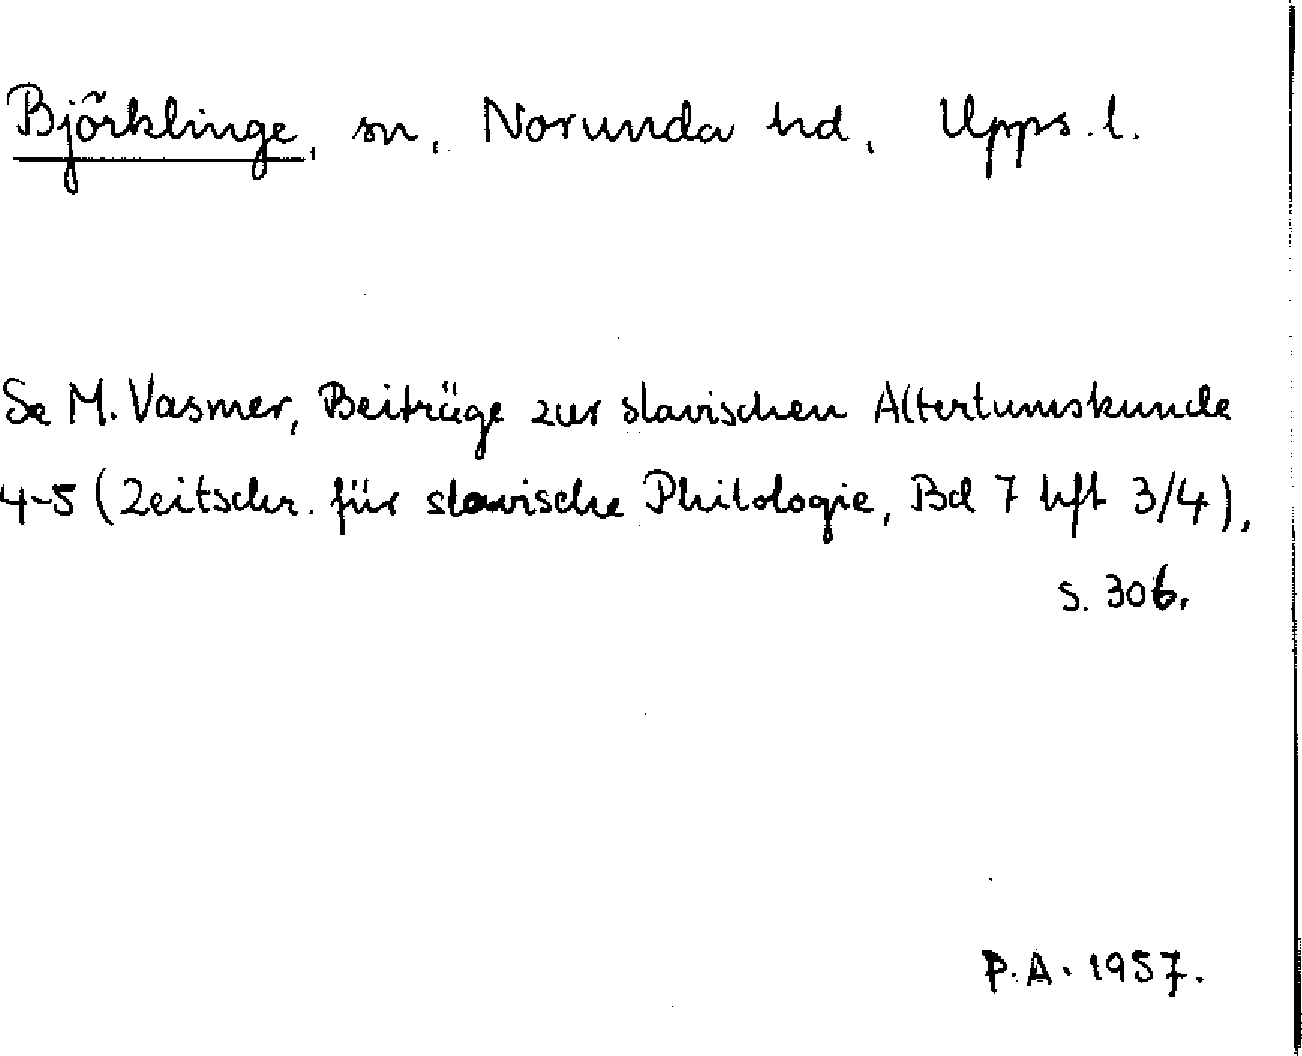 Björklinge, sn, Norunda hd, Upps. l.
Se M. Vasmer, Beiträge zur slavischen Altertumskunde
4-5 (Zeitschr. für slavische Philologie, Bd 7 hft 3/4),
s. 306.
P.A. 1957.